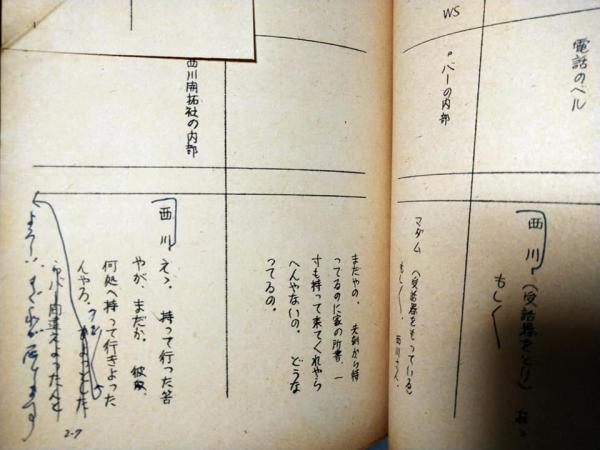 WS
電話のベル
西川 (受話器をとり) おゝ
もし〱
〃バーの内部
マダム (受話器をもっている)
もし〱、西川さん、
まだやの。先刻から待
ってるのに家の所書、一
寸も持って来てくれやら
へんやないの。どうな
ってるの。
西川開拓社の内部
西川 えゝ、持って行った筈
やが、まだか。彼奴、
何処へ持って行きよった
んやろ。
バー間違えよったんと
2-7